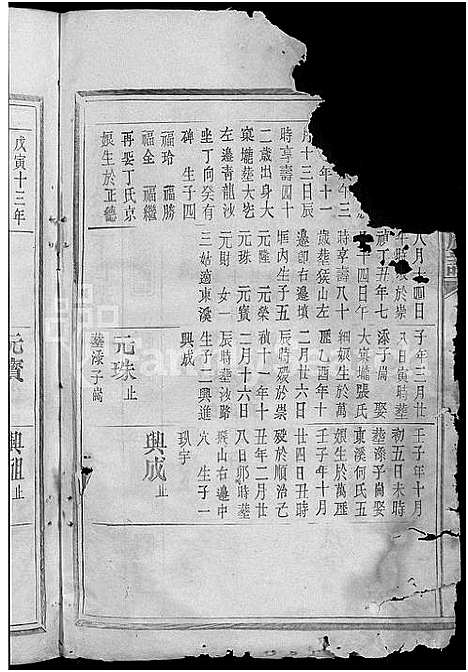 年三
年十一
月十三日辰
時享壽四十
二歲出身大
壠葬大宏
左邊青龍沙
坐丁向癸有
碑 生子四
福珨 福勝
福全 福繼
再娶丁氏京
娘生於正德
八月十四日
年時歿於崇
禎丁丑年七
二十四日午
時享壽八十
歲葬猴山左
邊卸右邊墳
堆内生子五
元隆 元榮
元珠 元寶
元財 女一
三姑適東溪
子年三月廿
八日寅時葬
漆子崗 娶
大宏壠張氏
細娘生於萬
曆酉年十
二月廿六日
辰時歿於崇
禎十一年十
二月十六日
辰時葬沙路
生子二興進
興成
元珠止
葬漆子崗
壬子年十月
初五日未時
葬漆子崗娶
東溪何氏五
娘生於萬曆
壬子年十月
廿四日丑時
歿於順治乙
丑年二月廿
八日卯時葬
猴山右邊中
穴 生子一
宇
興成止
戊寅十三年
元寶
興祖止